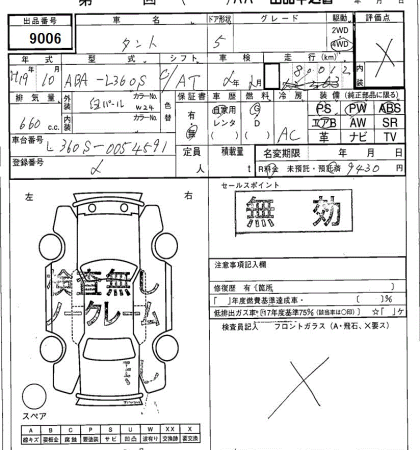 出品番号 車名 ドア形状 グレード 駆動 評価点
9006 タント 5 2WD 4WD ×
年式 型式 シフト 車検 走行(km) 内装
H19年10月 ABA-L360S C/AT 年 月
排気量 外装 カラーNo. 色替 保証書 車歴 燃料 冷房 装備(純正部品に限る)
白パール W24 有 自家用 G PS PW ABS
660 c.c. 内装 カラーNo. 無 レンタ D AC エアB AW SR
革 ナビ TV
車台番号 L360S-0054591
定員 人 積載量 t 名変期限 年 月 日
登録番号 R料金 未預託・預託済 9430 円
左 右 セールスポイント
無効
注意事項記入欄
検査無し
ノークレーム
修復歴 有(箇所
「 」年度燃費基準達成車・( )%
低排出ガス車・(17年度基準75%(該当車は○印) ☆「 」ヶ
検査員記入 フロントガラス(A・飛石、X要ス)
×
スペア
A B C P S U W X XX
線キズ 要板金 腐蝕 要塗装 サビ 凹凸 波有り 交換跡 要交換